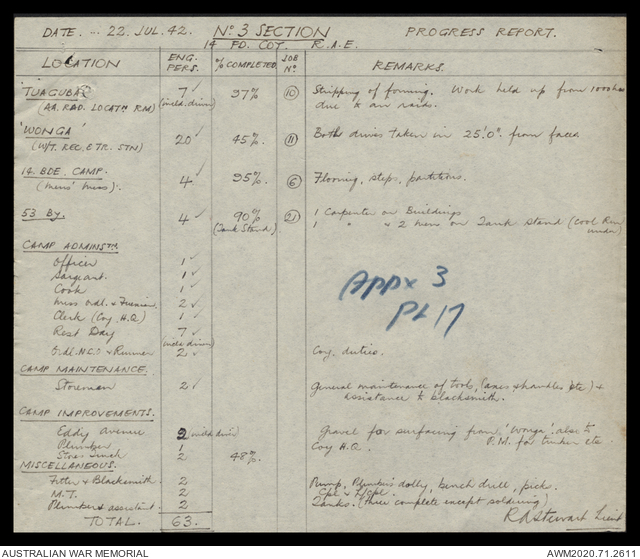 DATE. -- 22. JUL. 42. Nº 3 SECTION PROGRESS REPORT.
14 FD. COY. R.A.E.
LOCATION ENG. PERS. % COMPLETED. JOB Nº REMARKS.
'TUAGUBA' 7 97% 10 Stripping of forming. Work held up from 1000hrs
(AA. RAD. LOCATN RM) (incl. driver) due to air raids.
'WONGA' 20 45%. 11 Both drives taken in 25'.0". from faces
(W/T. REC. & TR. STN)
14. BDE. CAMP. 4 95%. 6 Flooring, steps, partitions.
(Mens' Mess).
53 By. 4 90% 21 1 Carpenter on Buildings
(Tank Stand) 1 " & 2 men on Tank Stand (Cool Rm under)
CAMP ADMINSTN
Officer 1
Sergeant. 1
Cook 1
Mess Ordl. & 2
Clerk (Coy. H.Q) 1
Rest Day 7
(incl driver)
Ordl. N.C.O & Runner 2 Coy. duties.
CAMP MAINTENANCE.
Storeman 2 General maintenance of tools, (axes & handles etc) &
assistance to blacksmith.
CAMP IMPROVEMENTS.
Eddy Avenue 2 (incl driver) Gravel for surfacing from 'Wonga' also to
Plumber 1 Coy H.Q. P.M. for timber etc
2 48%.
MISCELLANEOUS.
Fitter & Blacksmith. 2 Pump, Plumbers dolly, bench drill, pick.
M.T. 2 Cpl & L/Cpl.
Plumber & assistant. 2 Tanks. (three complete except soldering)
TOTAL. 63. R A Stewart Lieut
Appx 3
Pt 17
AUSTRALIAN WAR MEMORIAL AWM2020.71.2611